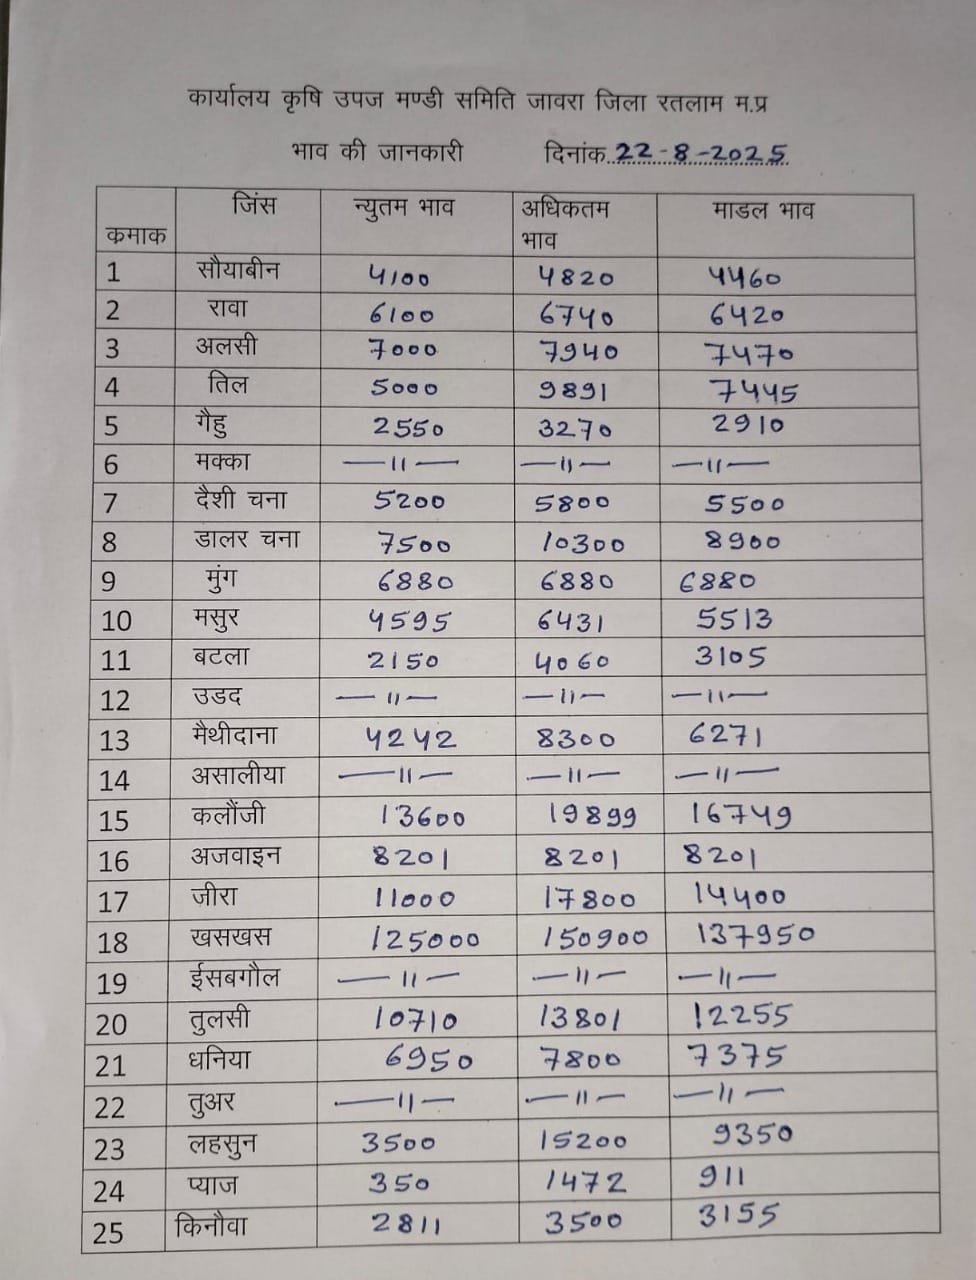 कार्यालय कृषि उपज मण्डी समिति जावरा जिला रतलाम म.प्र
भाव की जानकारी दिनांक..22-8-2025
कमाक जिंस न्युतम भाव अधिकतम भाव माडल भाव
1 सौयाबीन 4100 4820 4460
2 रावा 6100 6740 6420
3 अलसी 7000 7940 7470
4 तिल 5000 9891 7445
5 गैहु 2550 3270 2910
6 मक्का —11— —11— —11—
7 दैशी चना 5200 5800 5500
8 डालर चना 7500 10300 8900
9 मुंग 6880 6880 6880
10 मसुर 4595 6431 5513
11 बटला 2150 4060 3105
12 उडद —11— —11— —11—
13 मैथीदाना 4242 8300 6271
14 असालीया —11— —11— —11—
15 कलौंजी 13600 19899 16749
16 अजवाइन 8201 8201 8201
17 जीरा 11000 17800 14400
18 खसखस 125000 150900 137950
19 ईसबगौल —11— —11— —11—
20 तुलसी 10710 13801 12255
21 धनिया 6950 7800 7375
22 तुअर —11— —11— —11—
23 लहसुन 3500 15200 9350
24 प्याज 350 1472 911
25 किनौवा 2811 3500 3155